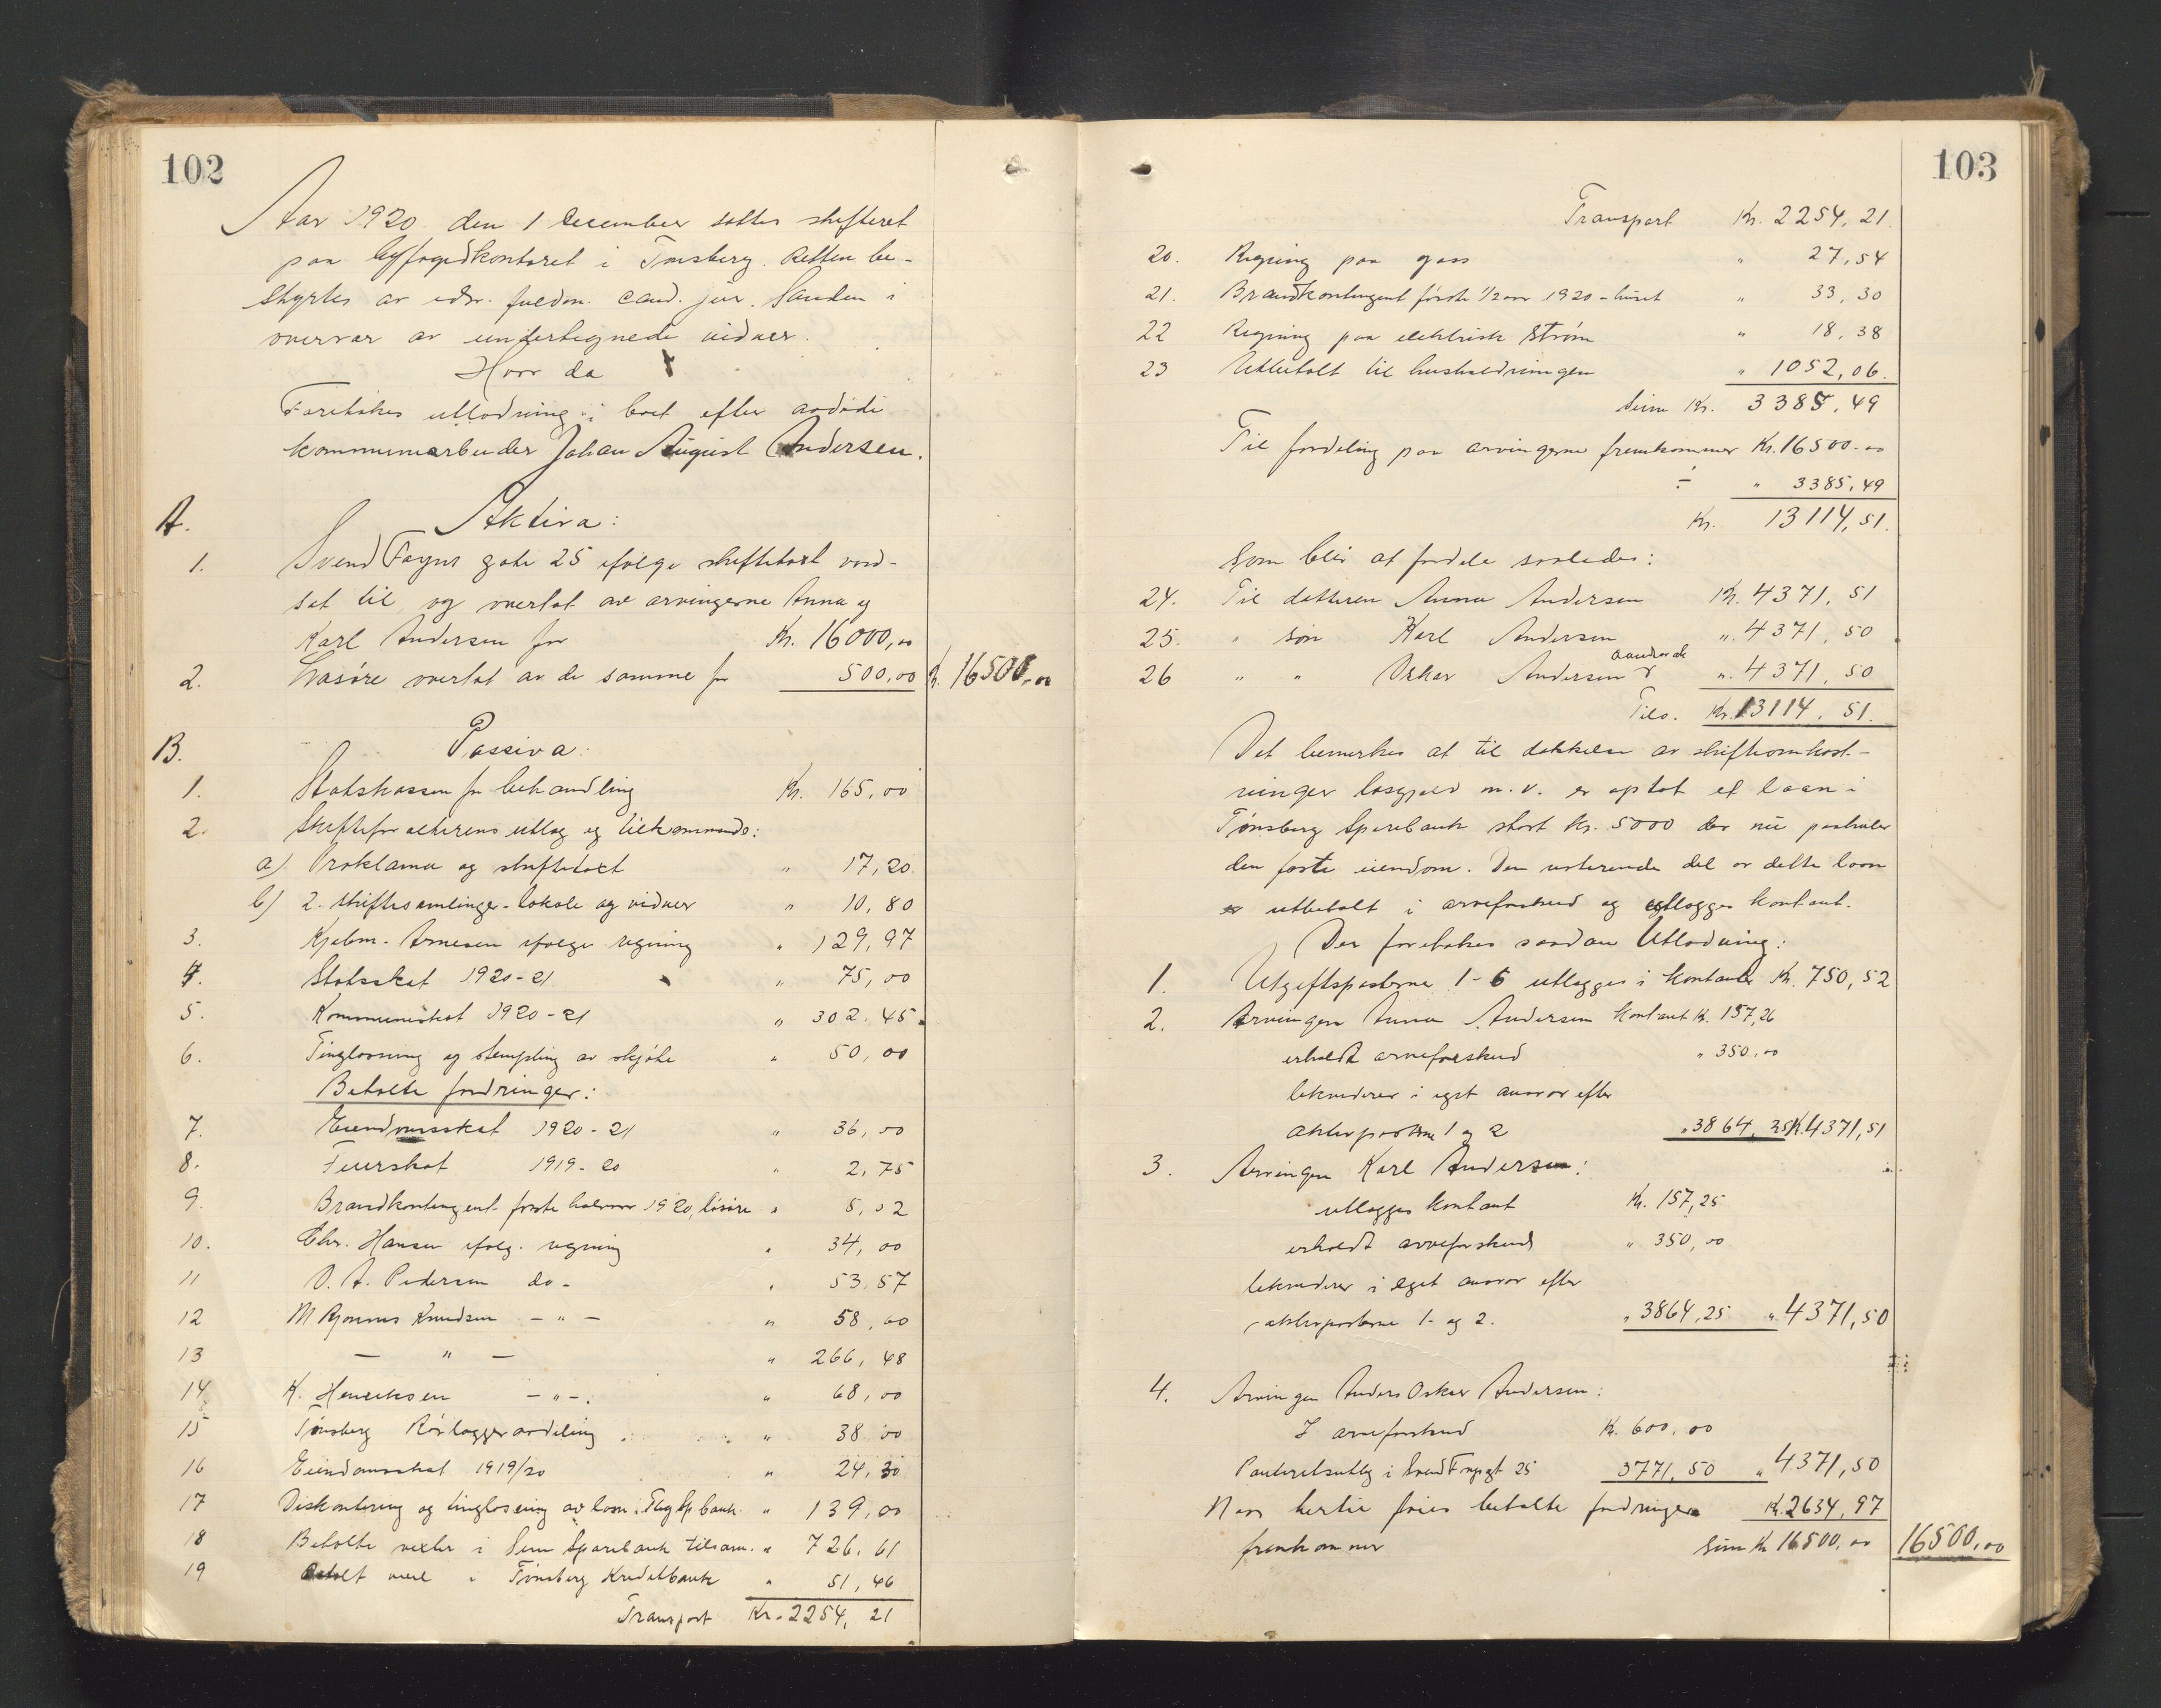 102
Aar 1920 den 1 December sattes skifteret
paa byfogedkontoret i Tønsberg. Retten be-
styrtes av edsv. fuldm. cand. jur. Sanden i
overvær av undertegnede vidner.
Hvor da
Foretokes utlodning i boet efter avdøde
kommunearbeider Johan August Andersen.
A. Aktiva:
1. Svend Foyns gate 25 ifølge skiftetaxt vurd-
sat til og overtat av arvingerne Anna og
Karl Andersen for Kr. 16000,00
2. Løsøre overtat av de samme for 500,00 Kr. 16500,00
B. Passiva:
1. Statskassen for behandling Kr. 165,00
2. Skifteforvalterens utlæg og tilkommende:
a) Proklama og skiftetaxt " 17,20
b) 2 skiftesamlinger - lokale og vidner " 10,80
3. Kjøbm. Arnesen ifølge regning " 129,97
4. Statsskat 1920-21 " 75,00
5. Kommuneskat 1920-21 " 302,45
6. Tinglæsning og stempling av skjøte " 50,00
Betalte fordringer:
7. Eiendomsskat 1920-21 " 36,00
8. Feierskat 1919-20 " 2,75
9. Brandkontingent første halvaar 1920, løsøre " 5,02
10. Chr. Hansen ifølg. regning " 34,00
11 O. A. Pedersen do- " 53,57
12 M Knudsen - " - " 58,00
13 - " - " 266,48
14 K. Henriksen - " -. " 68,00
15 Tønsberg Rørlæggeravdeling " 38,00
16 Eiendomsskat 1919/20 " 24,30
17 Diskontering og tinglæsning av laan i Tbg Sp.bank " 139,00
18 Betalte vexler i Sem Sparebank tilsam. " 726,61
19 Betalt vexel i Tønsberg Kreditbank " 51,46
Transport Kr. 2254,21
103
Transport Kr. 2254,21
20. Regning paa gass " 27,54
21. Brandkontingent første 1/2 aar 1920 - huset " 33,30
22 Regning paa elektrisk strøm " 18,38
23 Utbetalt til husholdningen " 1052,06.
Sum Kr. 3385,49
Til fordeling paa arvingerne fremkommer Kr. 16500.00
÷ " 3385,49
Kr. 13114,51.
Som blir at fordele saaledes:
24. Til datteren Anna Andersen Kr. 4371,51
25. " søn Karl Andersen " 4371,50
26 " " Oskar Andersen " 4371,50
Tils. Kr. 13114,51.
Det bemerkes at til dækkelse av skifteomkost-
ninger løsgjæld m.v. er optat et laan i
Tønsberg Sparebank stort Kr. 5000 der nu paahviler
den faste eiendom. Den resterende del av dette laan
er utbetalt i arveforskud og utlægges kontant.
Der foretokes saadan Utlodning:
1. Utgiftsposterne 1-6 utlægges i kontanter Kr. 750,52
2. Arvingen Anna Andersen kontant Kr. 157,26
erholdt arveforskud " 350,00
likviderer i eget ansvar efter
aktivposterne 1 og 2 " 3864,25 Kr. 4371,51
3. Arvingen Karl Andersen:
utlægges kontant Kr. 157,25
erholdt arveforskud " 350,00
likviderer i eget ansvar efter
aktivposterne 1- og 2. " 3864,25 " 4371,50
4. Arvingen Anders Oskar Andersen:
I arveforskud Kr. 600,00
Panteretsutlæg i Svend Foynsgt 25 3771,50 " 4371,50
Naar hertil føies betalte fordringer Kr. 2634,97
fremkommer Sum Kr 16500,00 16500,00